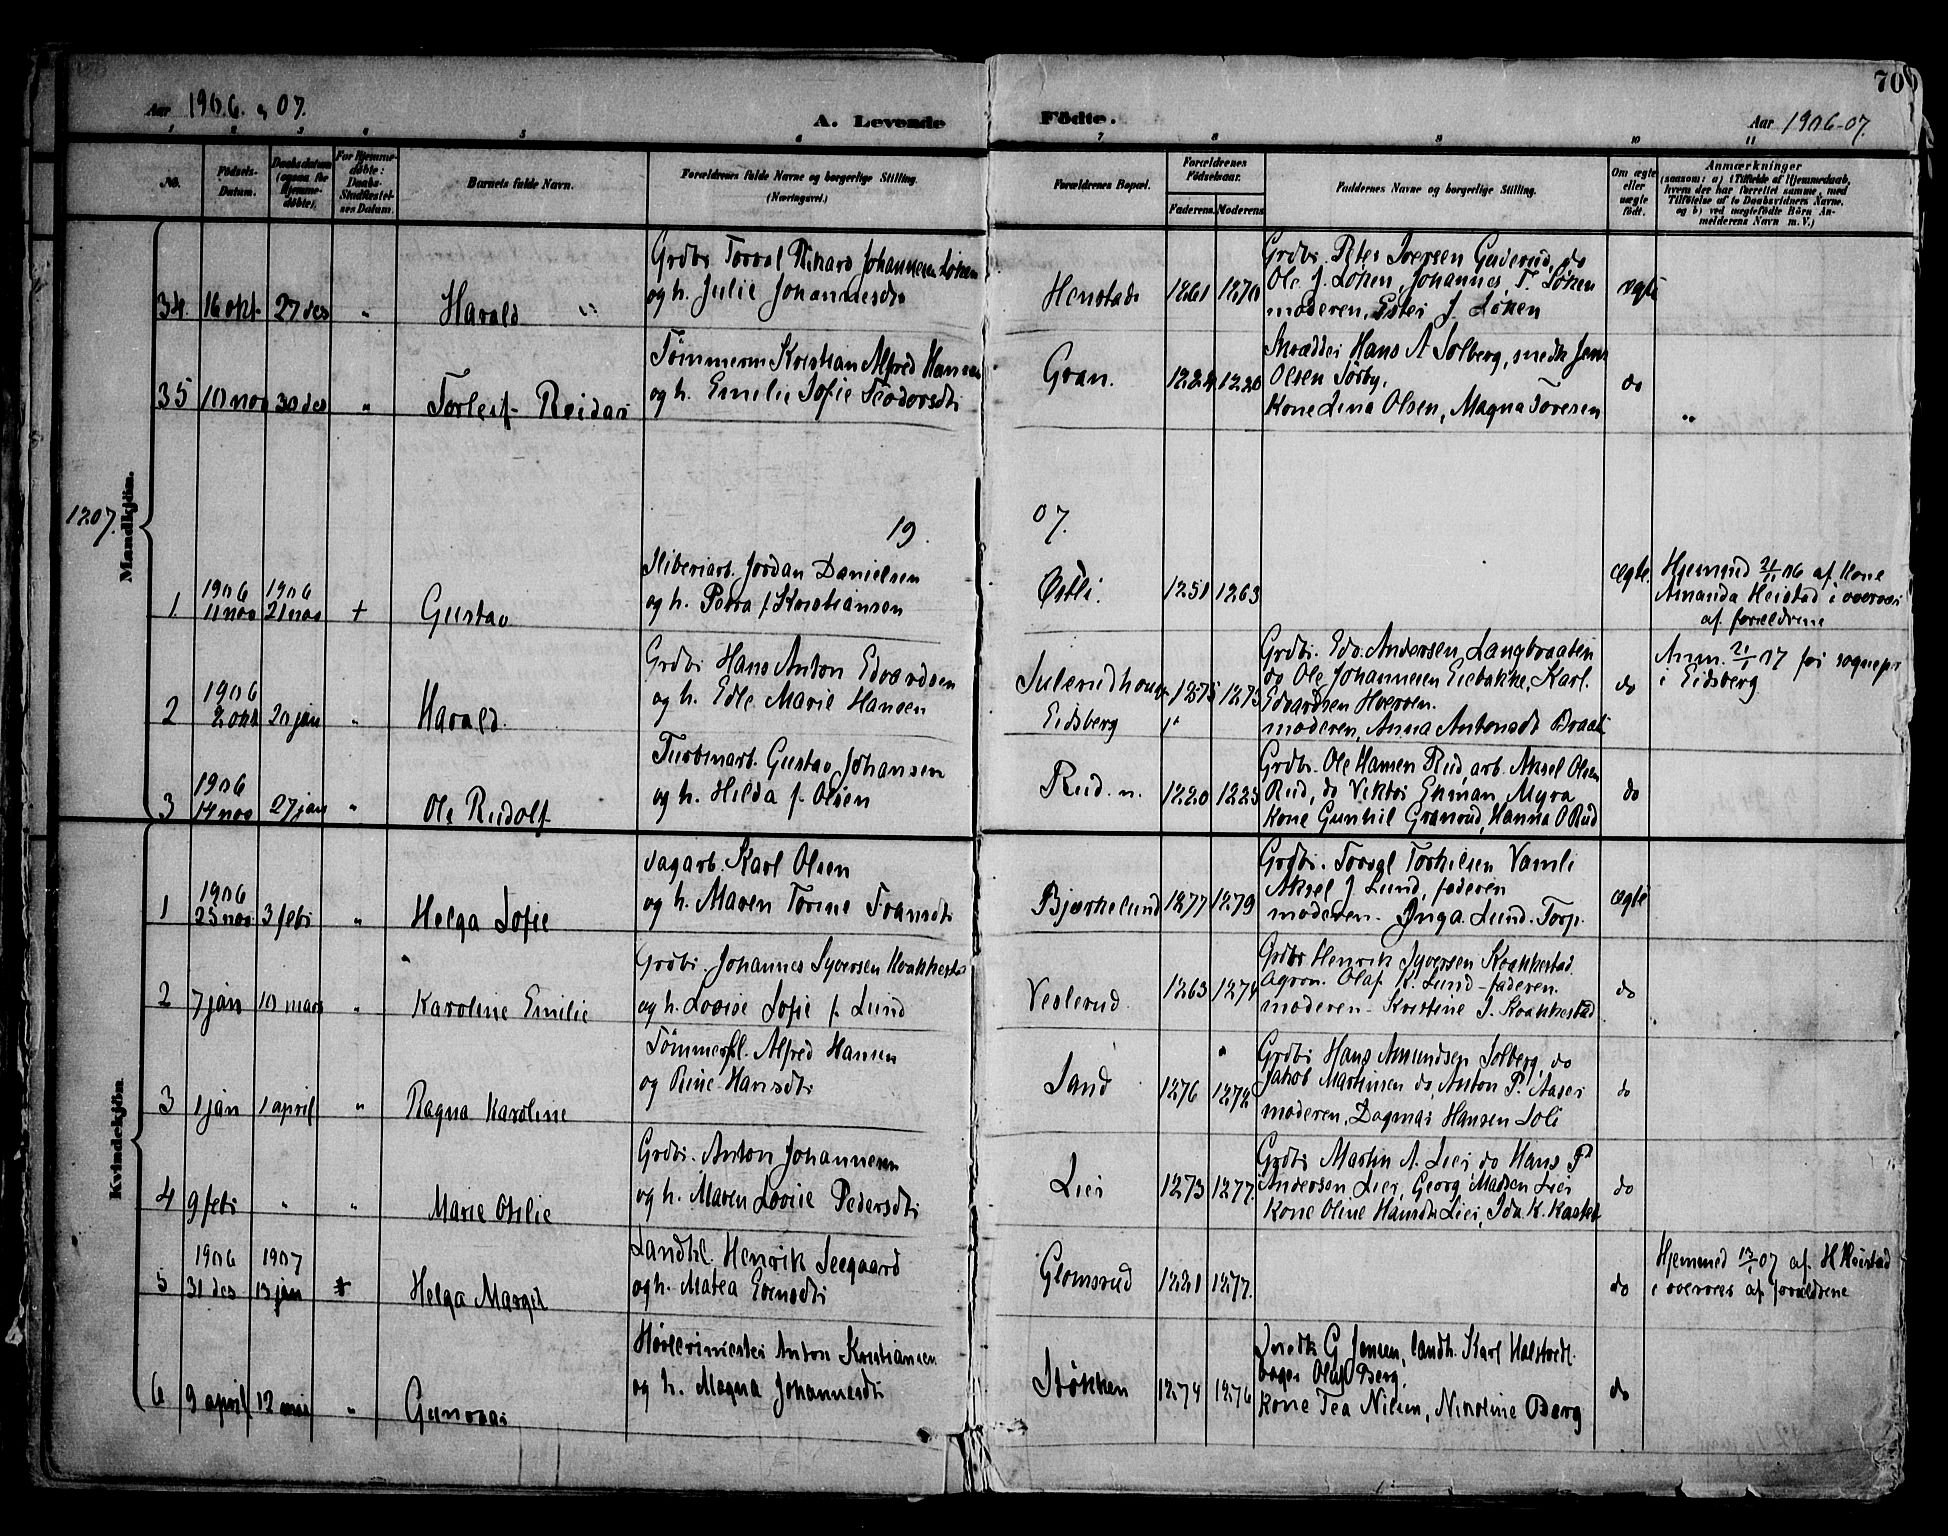 70
Aar 1906 og 07.
A. Levende Födte.
Aar 1906-07.
1 2 3 4 5 6 7 8 9 10 11
No.
Födsels-Datum.
Daabsdatum (ogsaa for Hjemme-döbte).
For Hjemme-döbte: Daabs-Stadfæstel-ses Datum.
Barnets fulde Navn.
Forældrenes fulde Navne og borgerlige Stilling. (Næringsvei.)
Forældrenes Bopæl.
Forældrenes Födselsaar.
Faderens. Moderens.
Faddernes Navne og borgerlige Stilling.
Om ægte eller uægte födt.
Anmærkninger
(saasom: a) i Tilfælde af Hjemmedaab,
hvem der har forrettet samme, med
Tilföielse af to Daabsvidners Navne,
og b) ved uægtefödte Börn An-
melderens Navn m. V.)
Mandkjön.
34. 16 okt. 27 des " Harald "
Grdbr. Torval Rikard Johannesen Løken
og h. Julie Johannesdtr
Henstad 1861 1870
Grdbr. Peter Iversen Guderud, do
Ole J. Løken, Johannes T. Løken
moderen, Ester J. Løken
ægte
35 10 nov 30 des " Torleif Reidar
Tømmerm Kristian Alfred Hansen
og h. Emilie Sofie Teodorsdtr
Gran. 1884 1880
Skrædder Hans A Solberg, snedk Jens
Olsen Sørby,
Kone Lina Olsen, Magna Toresen
do "
1907.
19 07.
1 1906 11 nov 1906 21 nov + Gustav
Sliberiarb. Jordan Danielsen
og h. Petra f. Kristiansen
Østli. 1851 1863
ægte.
Hjemmed 21/11 06 af Kone
Amanda Heistad i overvær
af forældrene
2 1906 2 okt 20 jan " Harald
Grdbr Hans Anton Edvardsen
og h. Edle Marie Hansen
Julerudhaugen
Eidsberg
1875 1873
Grdbr. Edv. Andersen, Langbraaten
do Ole Johannesen Eiebakke, Karl
Edvardsen
moderen, Anna Antonsdt Braat
do
Anm. 21/1 07 for sognepr
i Eidsberg
3 1906 14 nov 27 jan " Ole Rudolf
Turbinarb. Gustav Johansen
og h. Hilda f. Olsen
Rud. n. 1880 1883
Grdbr. Ole Hansen Rud, arb. Aksel Olsen
Rud, do Viktor Ekman Myra
Kone Gunhil Granrud, Hanna O Rud
do
Kvindekjön.
1 1906 25 nov 3 febr " Helga Sofie
Dagarb. Karl Olsen
og h. Maren Torine Fransdtr
Bjørkelund 1877 1879
Grdbr. Torvgl Torkilsen Vamli
Aksel J Lund, faderen
moderen - Inga Lund. Torp.
ægte
2 7 jan 10 mars " Karoline Emilie
Grdbr. Johannes Syversen Krakkestad
og h. Lovise Sofie f. Lund
Veslerud. 1863 1874
Grdbr Henrik Syversen Krakkestad.
Agron. Olaf K. Lund - faderen.
moderen - Kristine J. Krakkestad
do
3 1 jan 1 april " Ragna Karoline
Tømmerfl. Alfred Hansen
og Rine Hansdtr
Sand 1876 1872
Grdbr Hans Amundsen Solberg, do
Jakob Martinsen do, Anton P. Aaser
moderen, Dagmar Hansen Soli
do
4 9 febr " " Marie Otilie
Grdbr. Anton Johannesen
og h. Maren Lovise Pedersdtr
Lier 1873 1877.
Grdbr Martin A. Lier do Hans P
Andersen Lier, Georg Madsen Lier
Kone Oline Hansdtr Lier, Ida K.
do
5 1906 31 des 1907 13 jan + Helga Margit
Landhl. Henrik Seegaard
og h. Matea Evensdtr
Glomsrud 1881 1877.
do
Hjemmed 13/1 07 af H Heistad
i overvær af forældrene
6 9 april 12 mai " Gunvor
Høvlerimester Anton Kristiansen
og h. Magna Johannesdtr
Støkken 1874 1876
Snedk G Jensen, landh. Karl Halstvedt
bager Olaf Berg,
Kone Tea Nilsen, Nikoline Berg
do